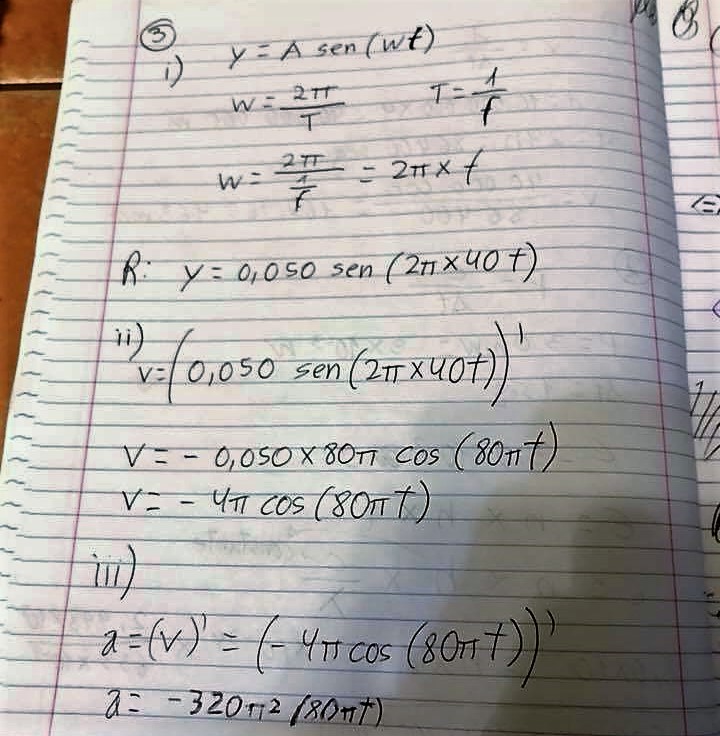 ③
i) y = A sen (wt)
w = 2π/T T = 1/f
w = 2π/(1/f) = 2π × f
R: y = 0,050 sen (2π × 40 t)
ii)
v = (0,050 sen (2π × 40t))'
v = - 0,050 × 80π cos (80πt)
v = - 4π cos (80π t)
iii)
a = (v)' = (- 4π cos (80π t))'
a = -320π² (80πt)